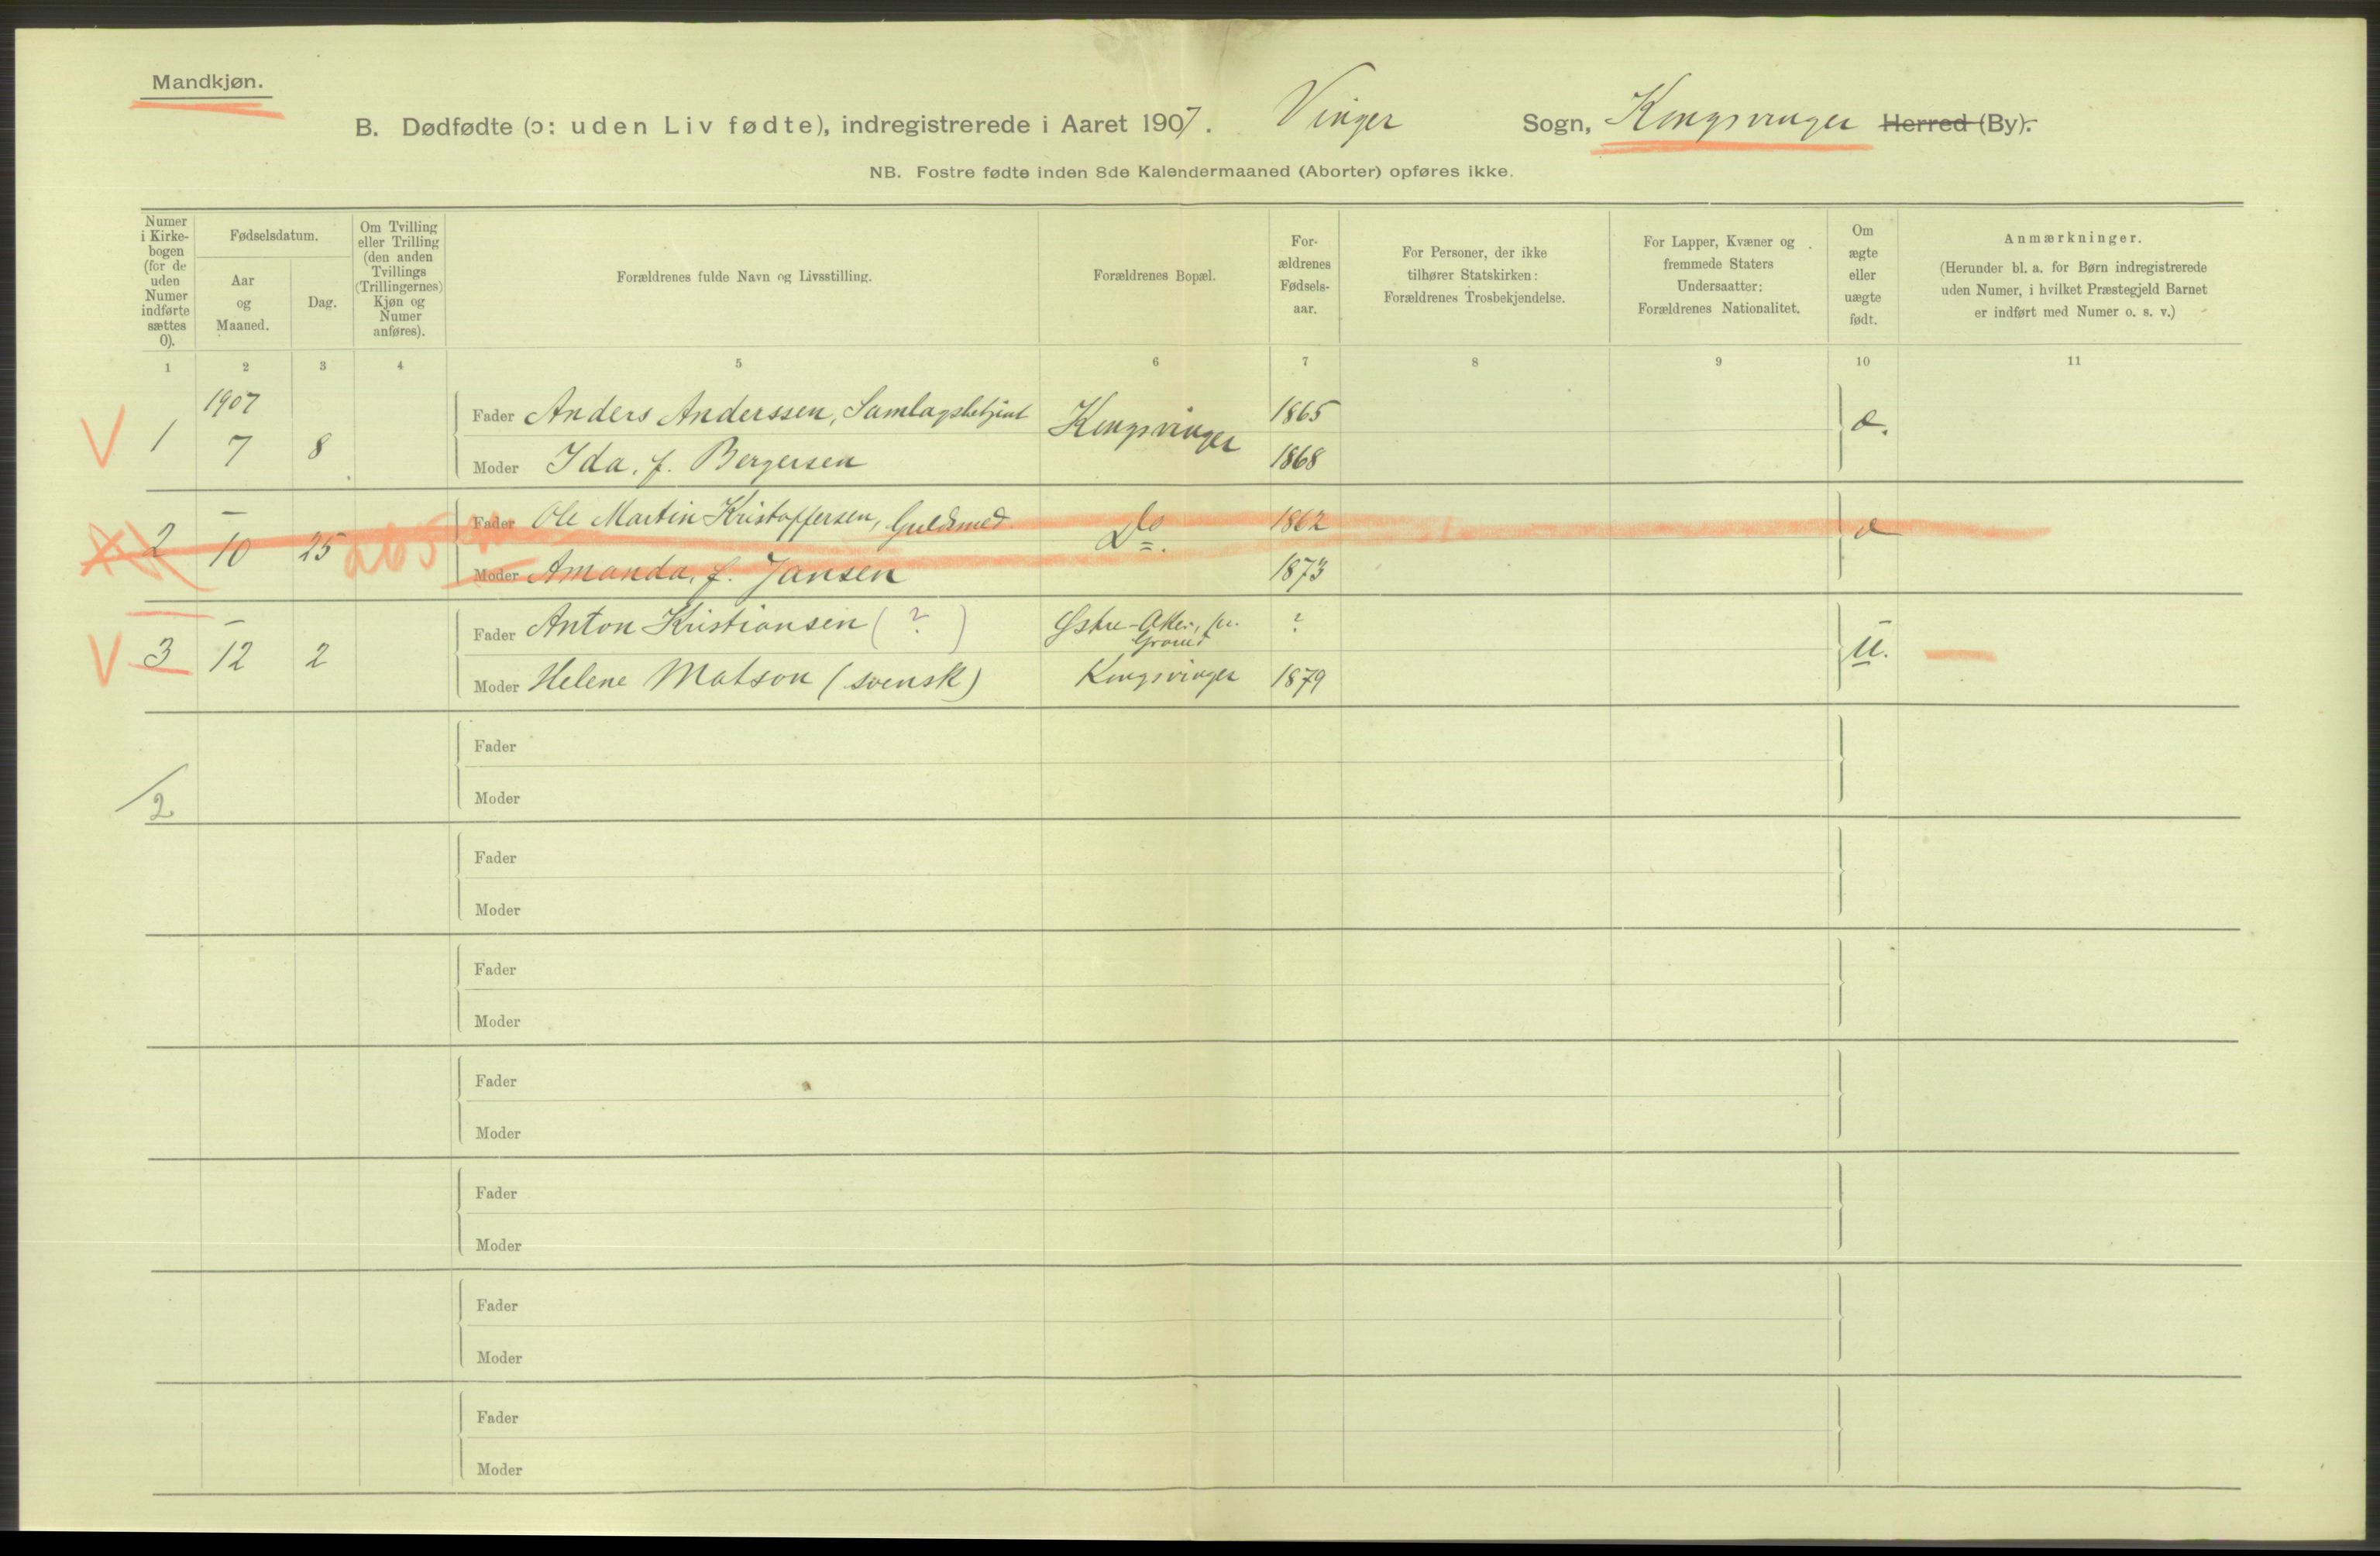 Mandkjøn.
B. Dødfødte (ɔ: uden Liv fødte), indregistrerede i Aaret 1907. Vinger Sogn, Kongsvinger Herred (By).
NB. Fostre fødte inden 8de Kalendermaaned (Aborter) opføres ikke.
Numer i Kirke-bogen (for de uden Numer indførte sættes 0).
Fødselsdatum.
Aar og Maaned.
Dag.
Om Tvilling eller Trilling (den anden Tvillings (Trillingernes) Kjøn og Numer anføres).
Forældrenes fulde Navn og Livsstilling.
Forældrenes Bopæl.
For-ældrenes Fødsels-aar.
For Personer, der ikke tilhører Statskirken: Forældrenes Trosbekjendelse.
For Lapper, Kvæner og fremmede Staters Undersaatter: Forældrenes Nationalitet.
Om ægte eller uægte født.
Anmærkninger.
(Herunder bl. a. for Børn indregistrerede uden Numer, i hvilket Præstegjeld Barnet er indført med Numer o. s. v.)
1 2 3 4 5 6 7 8 9 10 11
1907
V 1 7 8 Fader Anders Anderssen, Samlagsbetjent Kongsvinger 1865 æ.
Moder Ida, f. Bergersen 1868
2 – 10 25 Fader Ole Martin Kristoffersen, Guldsmed Do. 1862 æ
Moder Amanda, f. Jansen 1873
V 3 – 12 2 Fader Anton Kristiansen (?) Østre-Aker, ?
Moder Helene Matson (svensk) Kongsvinger 1879 u.
Fader
Moder
2
Fader
Moder
Fader
Moder
Fader
Moder
Fader
Moder
Fader
Moder
Fader
Moder